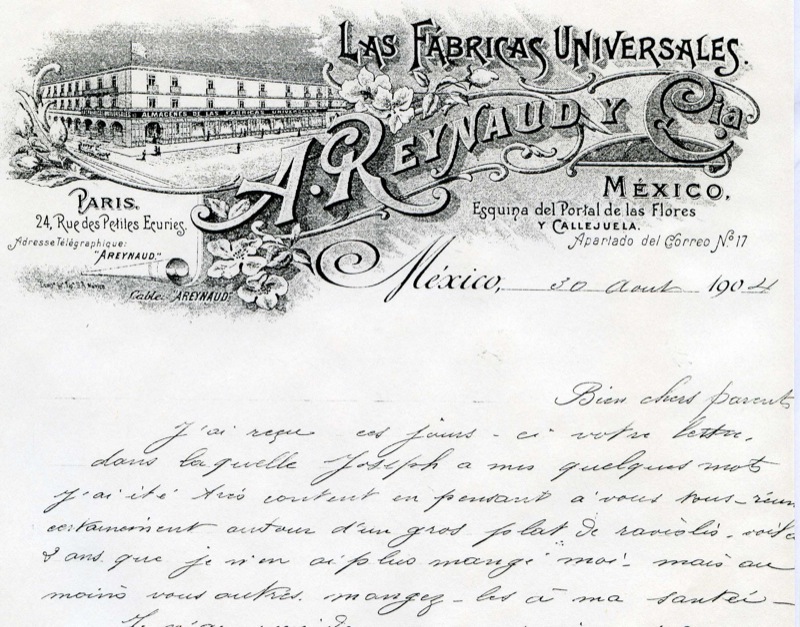 LAS FÁBRICAS UNIVERSALES.
ALMACENES DE LAS FABRICAS UNIVERSALES
A. REYNAUD Y Cia
PARIS.
24, Rue des Petites Ecuries.
Adresse Télégraphique:
"AREYNAUD."
Cable: "AREYNAUD"
MÉXICO,
Esquina del Portal de las Flores
Y CALLEJUELA.
Apartado del Correo Nº 17
México, 30 Aout 1904
Bien chers parents
J'ai reçu ces jours-ci votre lettre,
dans laquelle Joseph a mis quelques mots
j'ai été très content en pensant à vous tous-réun
certainement autour d'un gros plat de raviolis. voilà
8 ans que je n'en ai plus mangé moi- mais au
moins vous autres. mangez-les à ma santé-